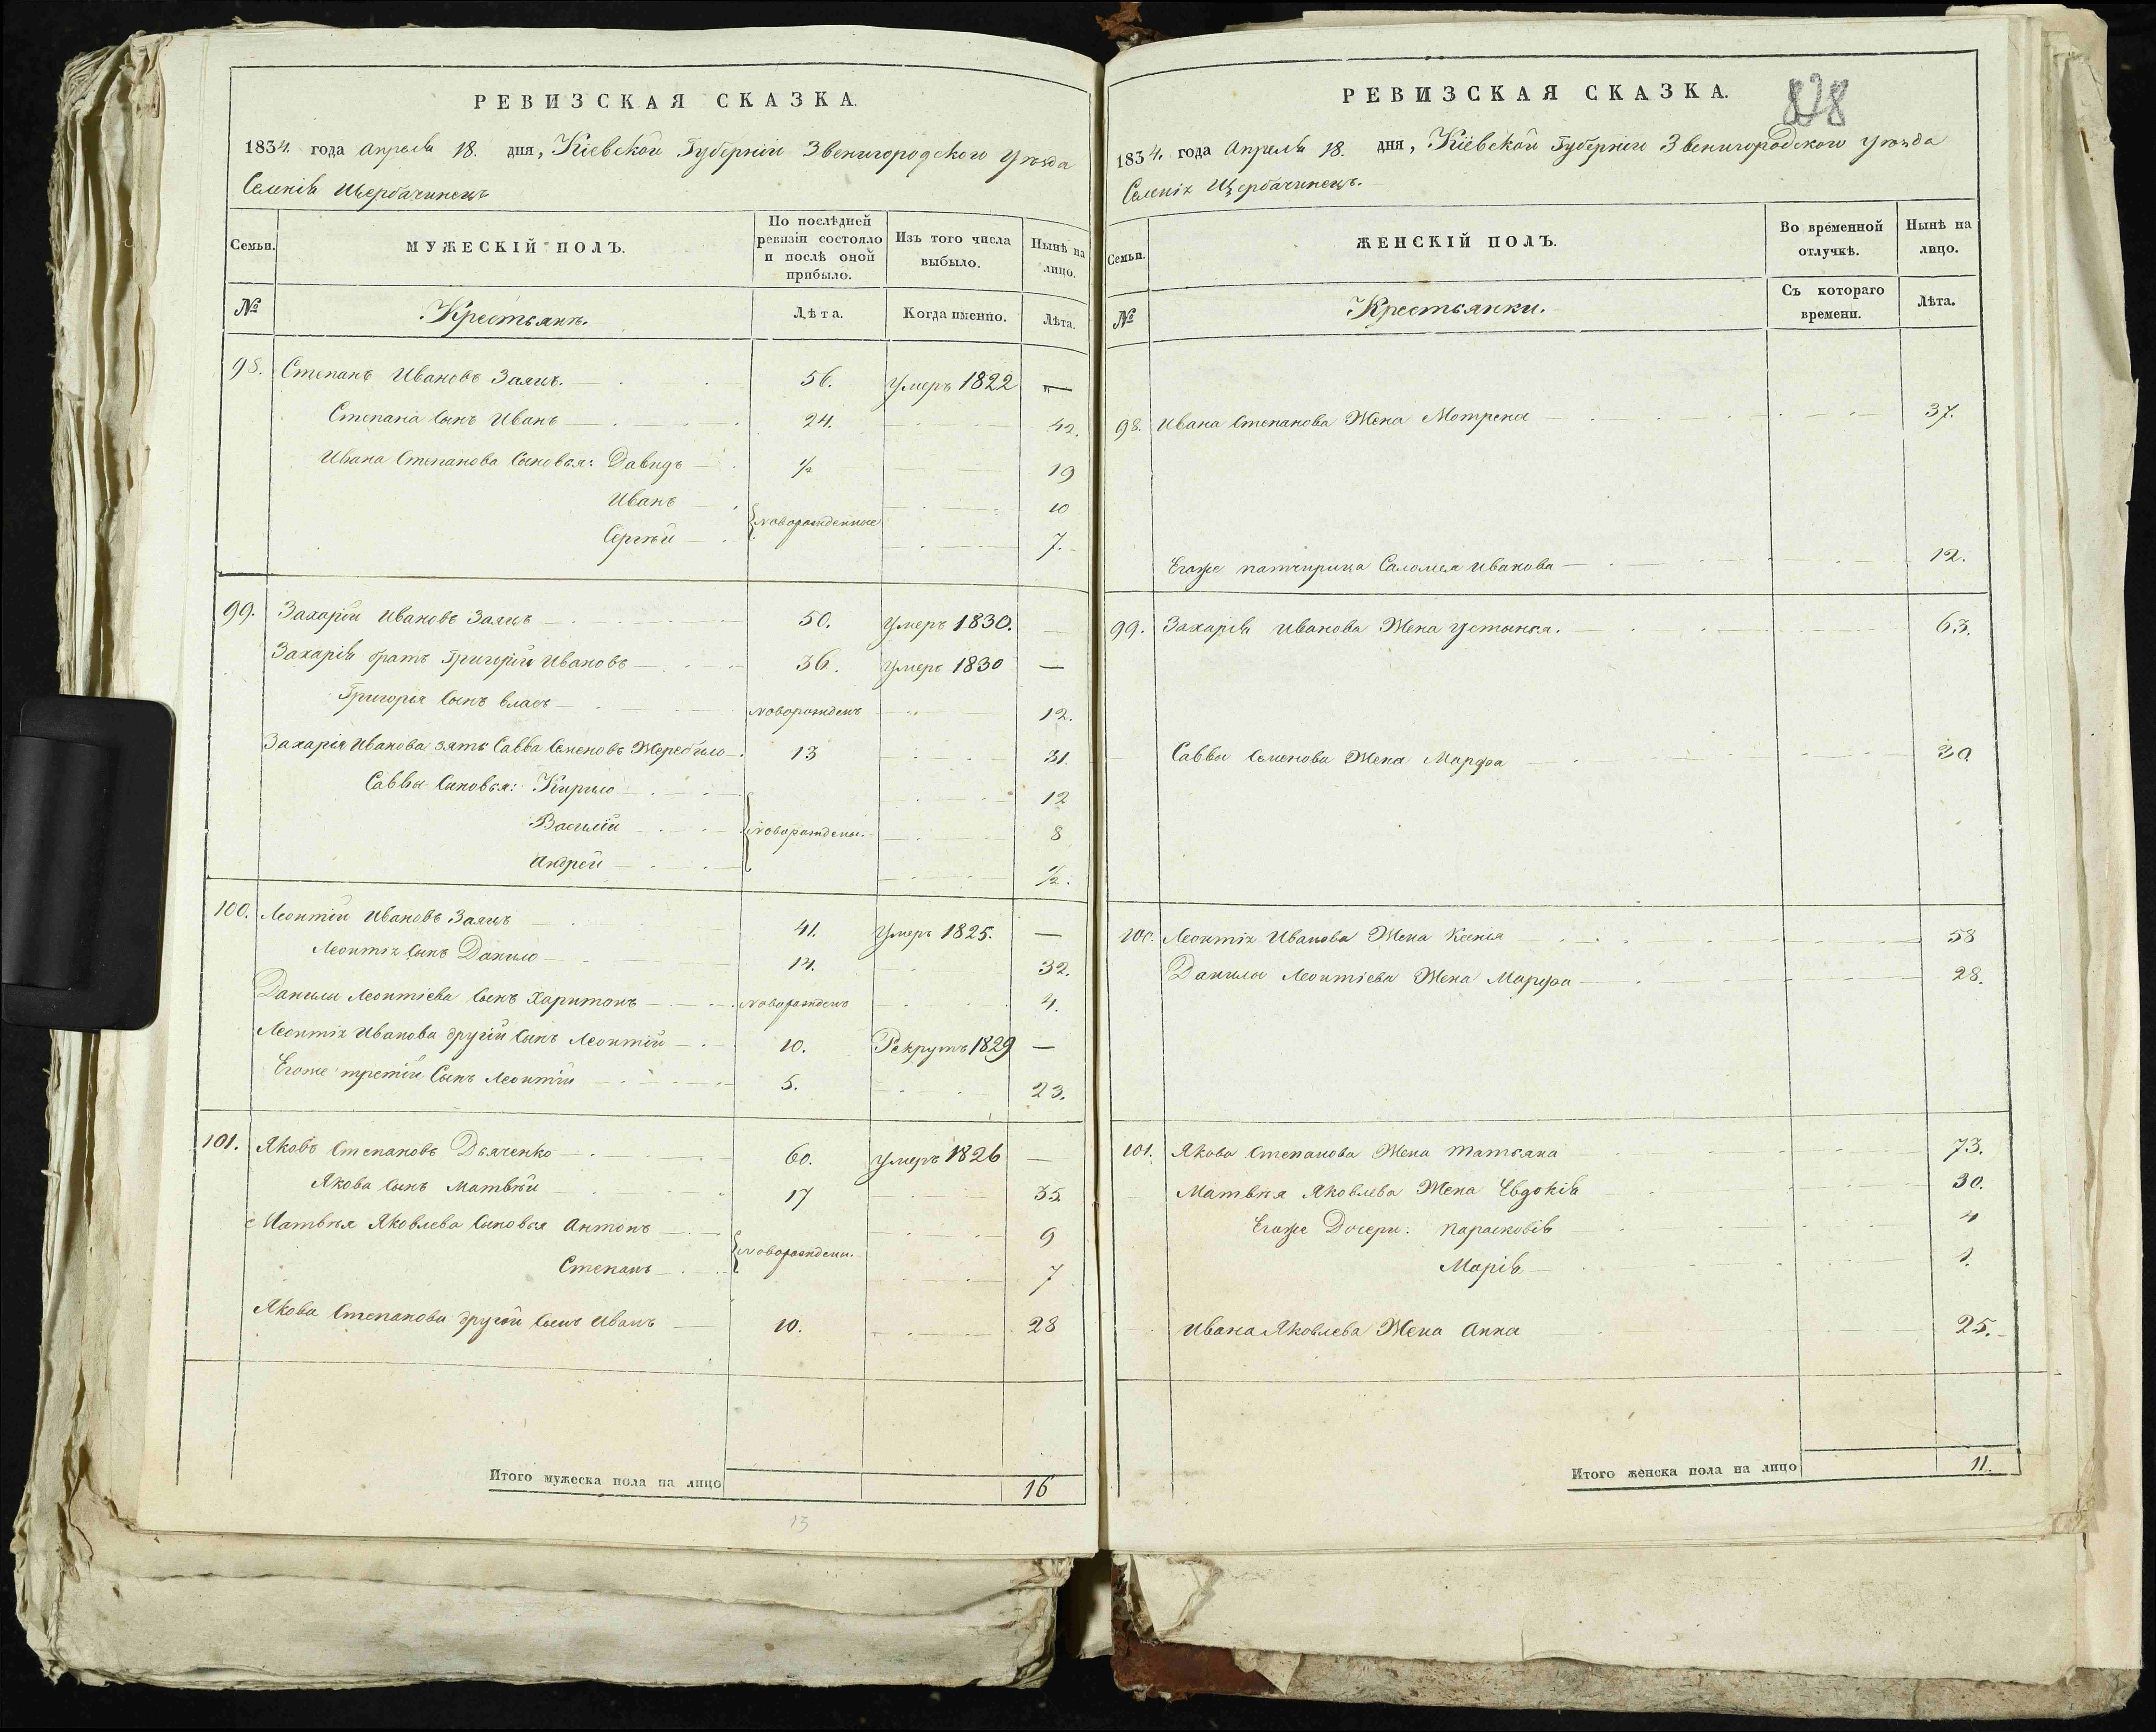 РЕВИЗСКАЯ СКАЗКА.
1834. года Апреля 18. дня, Кіевской Губерніи Звенигородского Уѣзда
Селенія Щербачинецъ
Семьи.
МУЖЕСКІЙ ПОЛЪ.
По послѣдней ревизіи состояло и послѣ оной прибыло.
Изъ того числа выбыло.
Нынѣ на лицо.
№
Крестьянъ.
Лѣта.
Когда именно.
Лѣта.
98. Степанъ Ивановъ Заяцъ. 56. Умеръ 1822 —
Степана Сынъ Иванъ 24. 42.
Ивана Степанова Сыновья: Давидъ 1/2 19
Иванъ 10
Новорожденные
Сергѣй 7.
99. Захарій Ивановъ Заяцъ 50. Умеръ 1830.
Захарія братъ Григорій Ивановъ 36. Умеръ 1830 —
Григорія Сынъ Власъ Новорожденъ 12.
Захарія Иванова зять Савва Семеновъ Жеребило 13 31.
Саввы Сыновья: Кирило 12
Василій Новорожденн. 8
Андрей 1/2.
100. Леонтій Ивановъ Заяцъ 41. Умеръ 1825. —
Леонтія Сынъ Данило 14. 32.
Данилы Леонтіева Сынъ Харитонъ Новорожденъ 4.
Леонтія Иванова другій Сынъ Леонтій 10. Рекрутъ 1829 —
Егоже третій Сынъ Леонтій 5. 23.
101. Яковъ Степановъ Дьяченко 60. Умеръ 1826 —
Якова Сынъ Матвѣй 17 35
Матвѣя Яковлева Сыновья Антонъ 9
Новорожденн.
Степанъ 7
Якова Степанова другій Сынъ Иванъ 10. 28
Итого мужеска пола на лицо 16
13
828
РЕВИЗСКАЯ СКАЗКА.
1834. года Апреля 18. дня, Кіевской Губерніи Звенигородского Уѣзда
Селенія Щербачинецъ.
Семьи.
ЖЕНСКІЙ ПОЛЪ.
Во временной отлучкѣ.
Нынѣ на лицо.
№
Крестьянки.
Съ котораго времени.
Лѣта.
98. Ивана Степанова Жена Мотрена 37.
Егоже патчирица Саломея Иванова 12.
99. Захарія Иванова Жена Устинья. 63.
Саввы Семенова Жена Марфа 30
100. Леонтія Иванова Жена Ксенія 58
Данилы Леонтіева Жена Марфа 28.
101. Якова Степанова Жена Татьяна 73.
Матвѣя Яковлева Жена Евдокія 30.
Егоже Дочери: Парасковія 4
Марія 1.
Ивана Яковлева Жена Анна 25.
Итого женска пола на лицо 11.